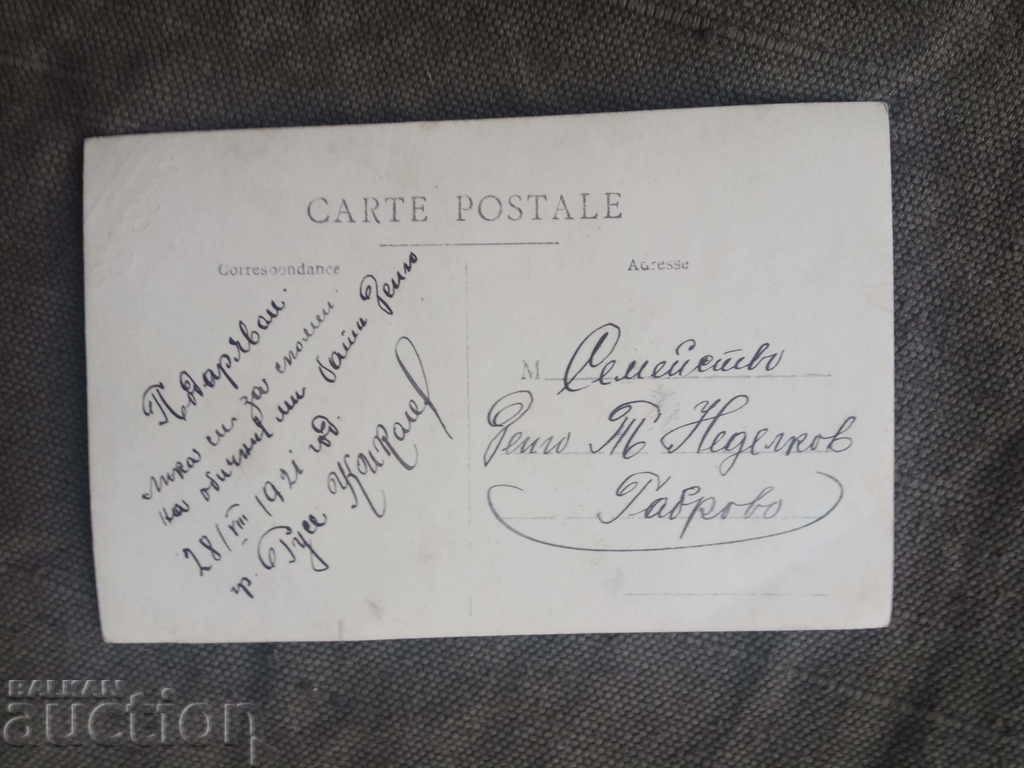 CARTE POSTALE
Correspondance
Adresse
Подарявам
лика си за спомен
на обичния ми бати Репо
28/VIII 1921 год.
гр. Русе
М Семейство
Т Неделков
Габрово
BALKAN
auction